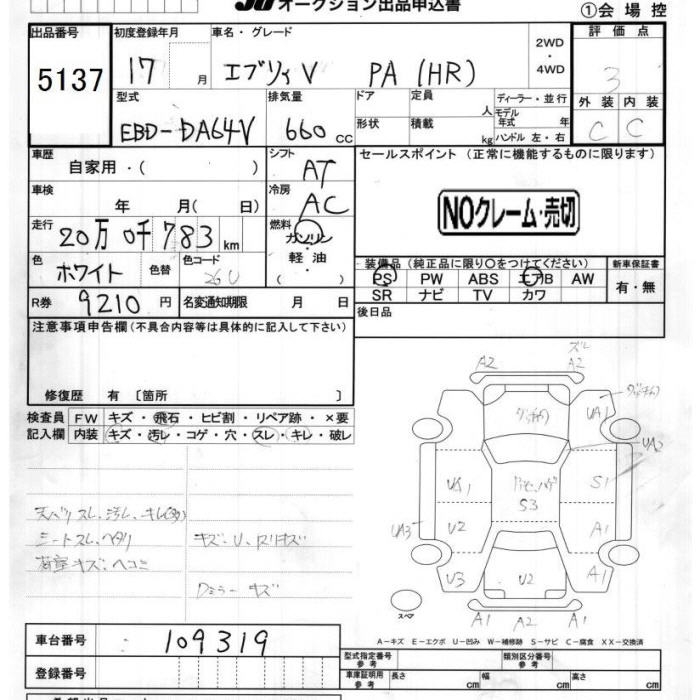 JU オークション出品申込書
①会場控
出品番号 5137
初度登録年月 17 月
車名・グレード エブリィV PA (HR)
2WD・4WD
評価点 3
型式 EBD-DA64V
排気量 660 CC
ドア 形状
定員 人
積載 kg
ディーラー・並行
モデル年式 年
ハンドル 左・右
外装 内装
C C
車歴 自家用・( )
シフト AT
セールスポイント(正常に機能するものに限ります)
車検 年 月( 日)
冷房 AC
NOクレーム・売切
走行 20万0千783 km
燃料 ガソリン・軽油 ( )
色 ホワイト 色替
色コード 26U
装備品(純正品に限り○をつけてください) 新車保証書
PS PW ABS エアB AW
SR ナビ TV カワ
有・無
R券 9210 円
名変通知期限 月 日
後日品
注意事項申告欄(不具合内容等は具体的に記入して下さい)
修復歴 有〔箇所 〕
検査員記入欄
FW キズ・飛石・ヒビ割・リペア跡・×要
内装 キズ・汚レ・コゲ・穴・スレ・キレ・破レ
天ベリ スレ、汚レ、キレ
シートスレ、ヘタリ
荷室キズ、ヘコミ
キズ、U、ヌリキズ
Dミラー キズ
A2 A2 スレ
UA1
UA2
UA1 S3 S1
UA3 U2 A1
U3 U2 A1
A1 A2 A1
スペア
A-キズ E-エクボ U-凹み W-補修跡 S-サビ C-腐食 XX-交換済
車台番号 109319
登録番号
型式指定番号 参考
類別区分番号 参考
車庫証明用 参考 長さ cm 幅 cm 高さ cm